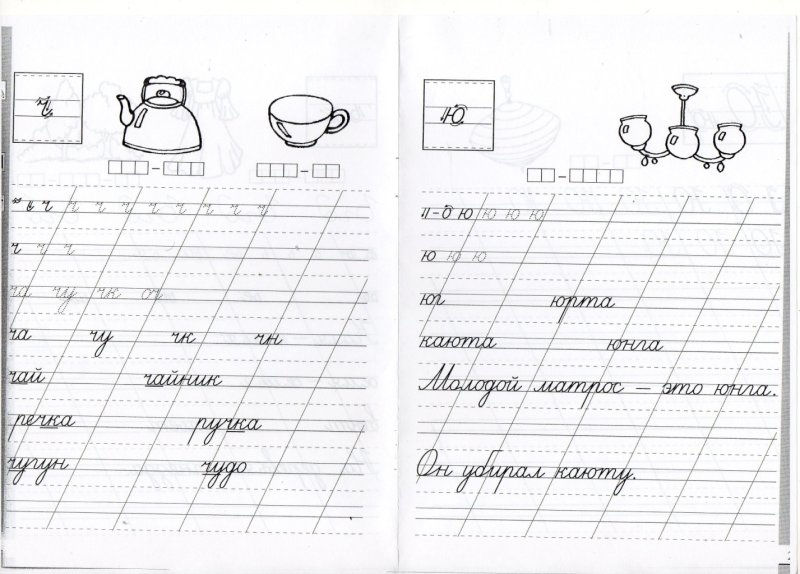 ч
ч ч ч ч ч ч ч ч
ч ч ч
ча чу чк оч
ча чу чк чн
чай чайник
речка ручка
чугун чудо
ю
ю ю ю ю
ю ю ю
юг юрта
каюта юнга
Молодой матрос — это юнга.
Он убирал каюту.